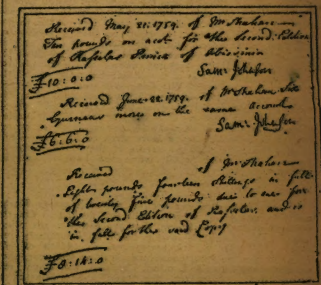 Received May 21: 1759. of Mr Strahan
Ten pounds on acct for the Second Edition
of Rasselas Prince of Abissinia
Sam: Johnson
£10:0:0
Received June 22. 1759. of Mr Strahan Six
Guineas more on the same account
Sam: Johnson
£6:6:0
Received of Mr Strahan
Eight pounds fourteen Shillings in full
of twenty five pounds due to me for
the Second Edition of Rasselas and is
in full for the said Copy
£8:14:0